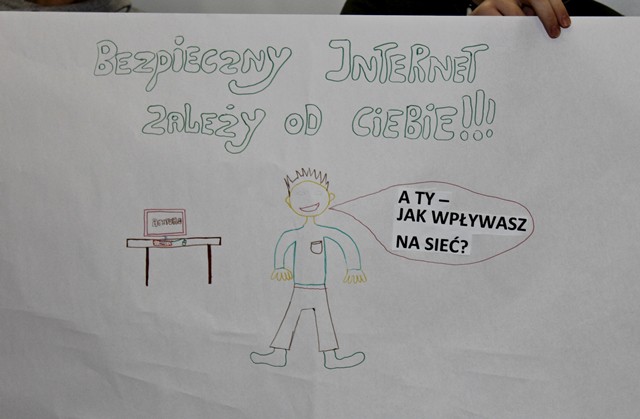 BEZPIECZNY INTERNET
ZALEŻY OD CIEBIE!!!
A TY –
JAK WPŁYWASZ
NA SIEĆ?